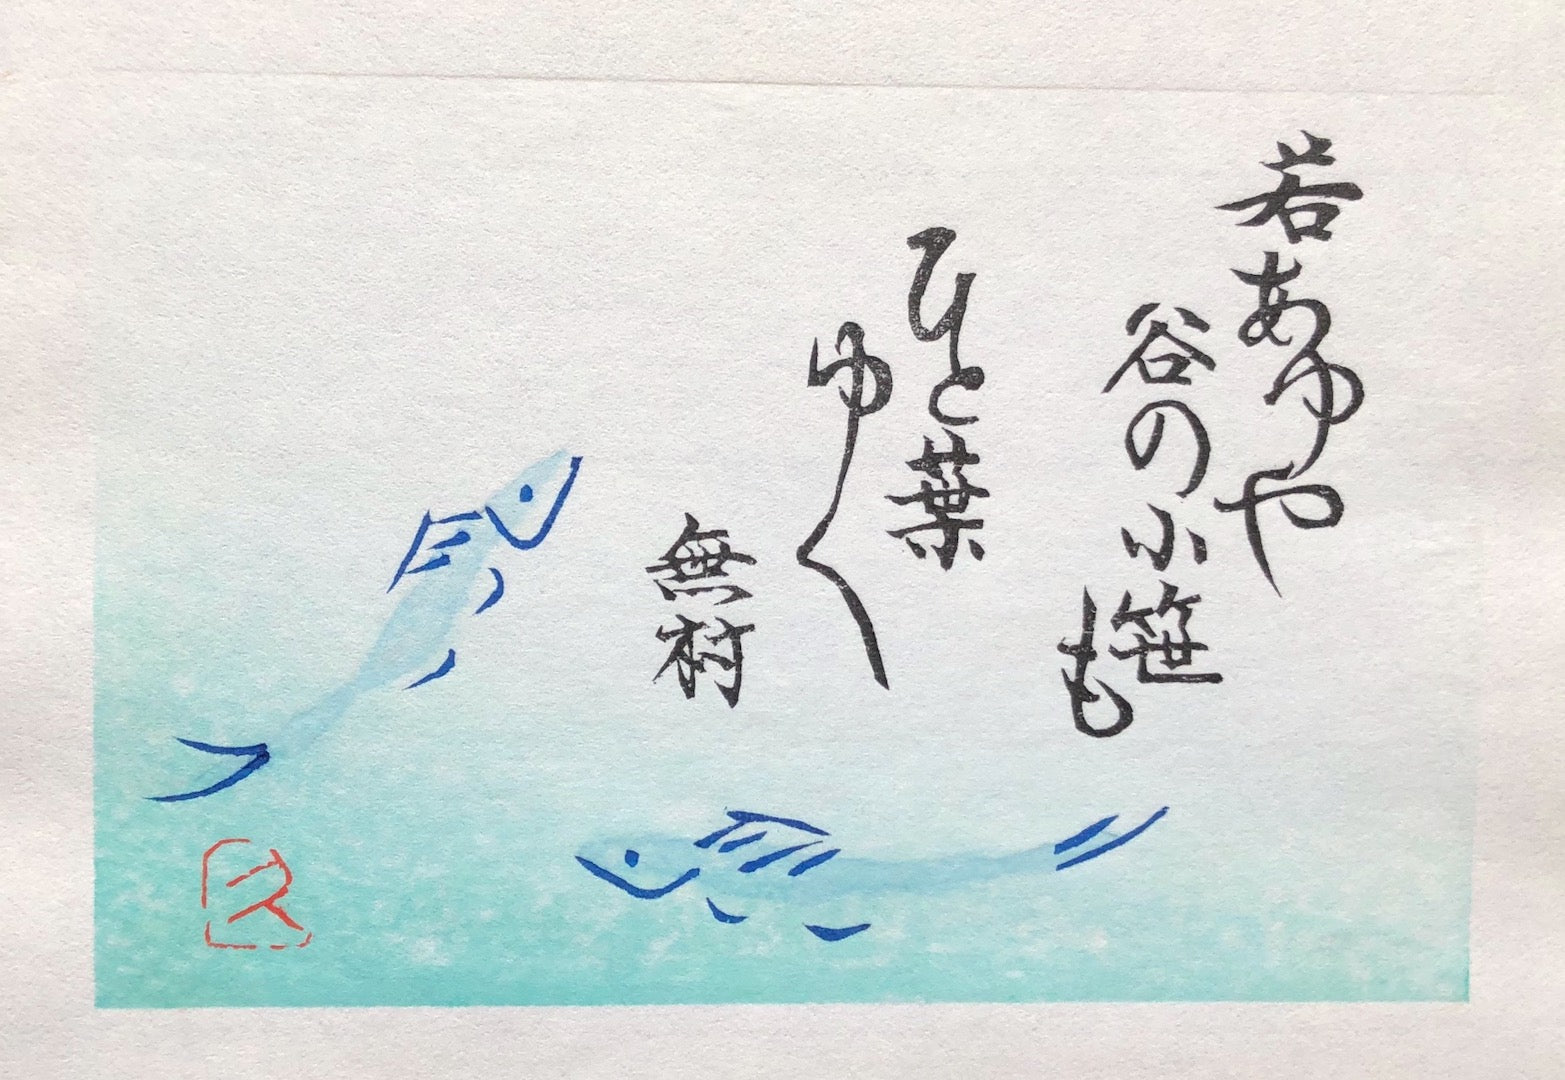 若あゆや
谷の小笹
も
ひと葉
ゆく
無村